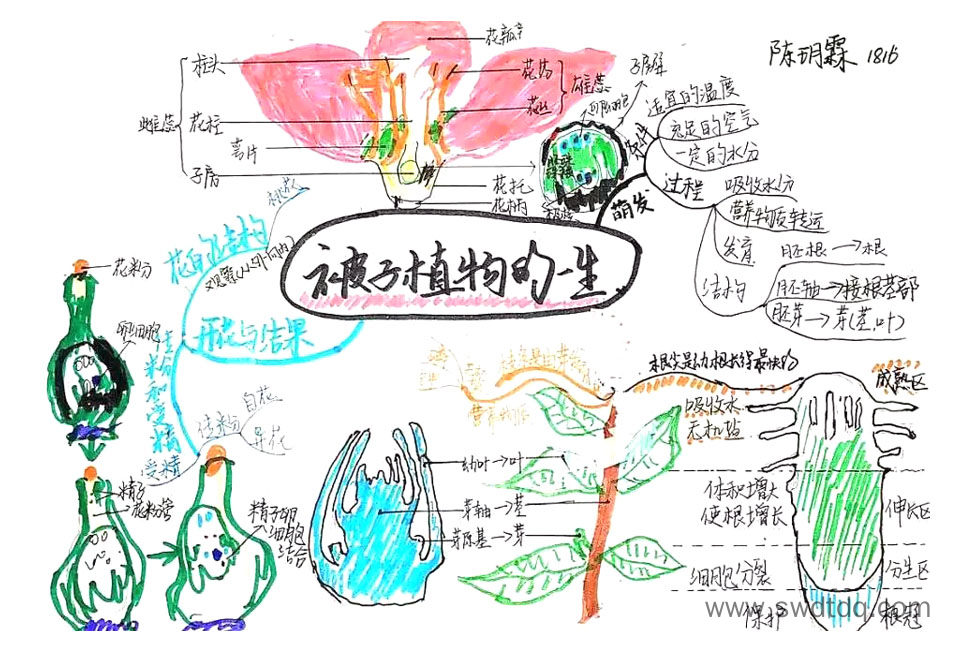 陈玥霖 1816
花瓣
柱头
花药
雄蕊
子房壁
雌蕊
花柱
花丝
萼片
子房
花托
花柄
适宜的温度
充足的空气
一定的水分
条件
萌发
过程
吸收水分
营养物质转运
发育
结构
胚根→根
胚轴→接根茎部
胚芽→芽(茎,叶)
被子植物的一生
花的结构
桃花
观察(从外向内)
开花与结果
传粉和受精
传粉
自花
异花
受精
花粉
卵细胞
精子
花粉管
精子卵
细胞
结合
幼叶→叶
芽轴→茎
芽原基→芽
根尖是幼根长得最快的
成熟区
吸收水
无机盐
体积增大
使根增长
伸长区
细胞分裂
分生区
保护
根冠
www.swdtdq.com